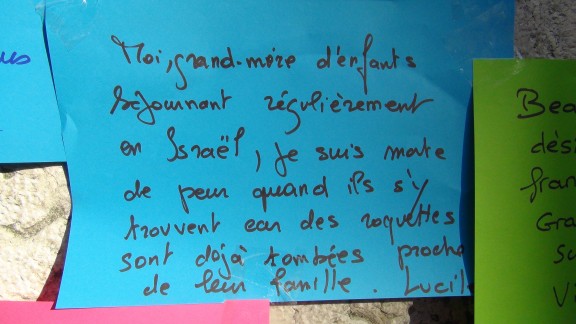 us
Moi, grand-mère d'enfants
séjournant régulièrement
en Israël, je suis morte
de peur quand ils s'y
trouvent car des roquettes
sont dejà tombées proche
de leur famille. Lucil
Bea
dési
fran
Gra
Su
V